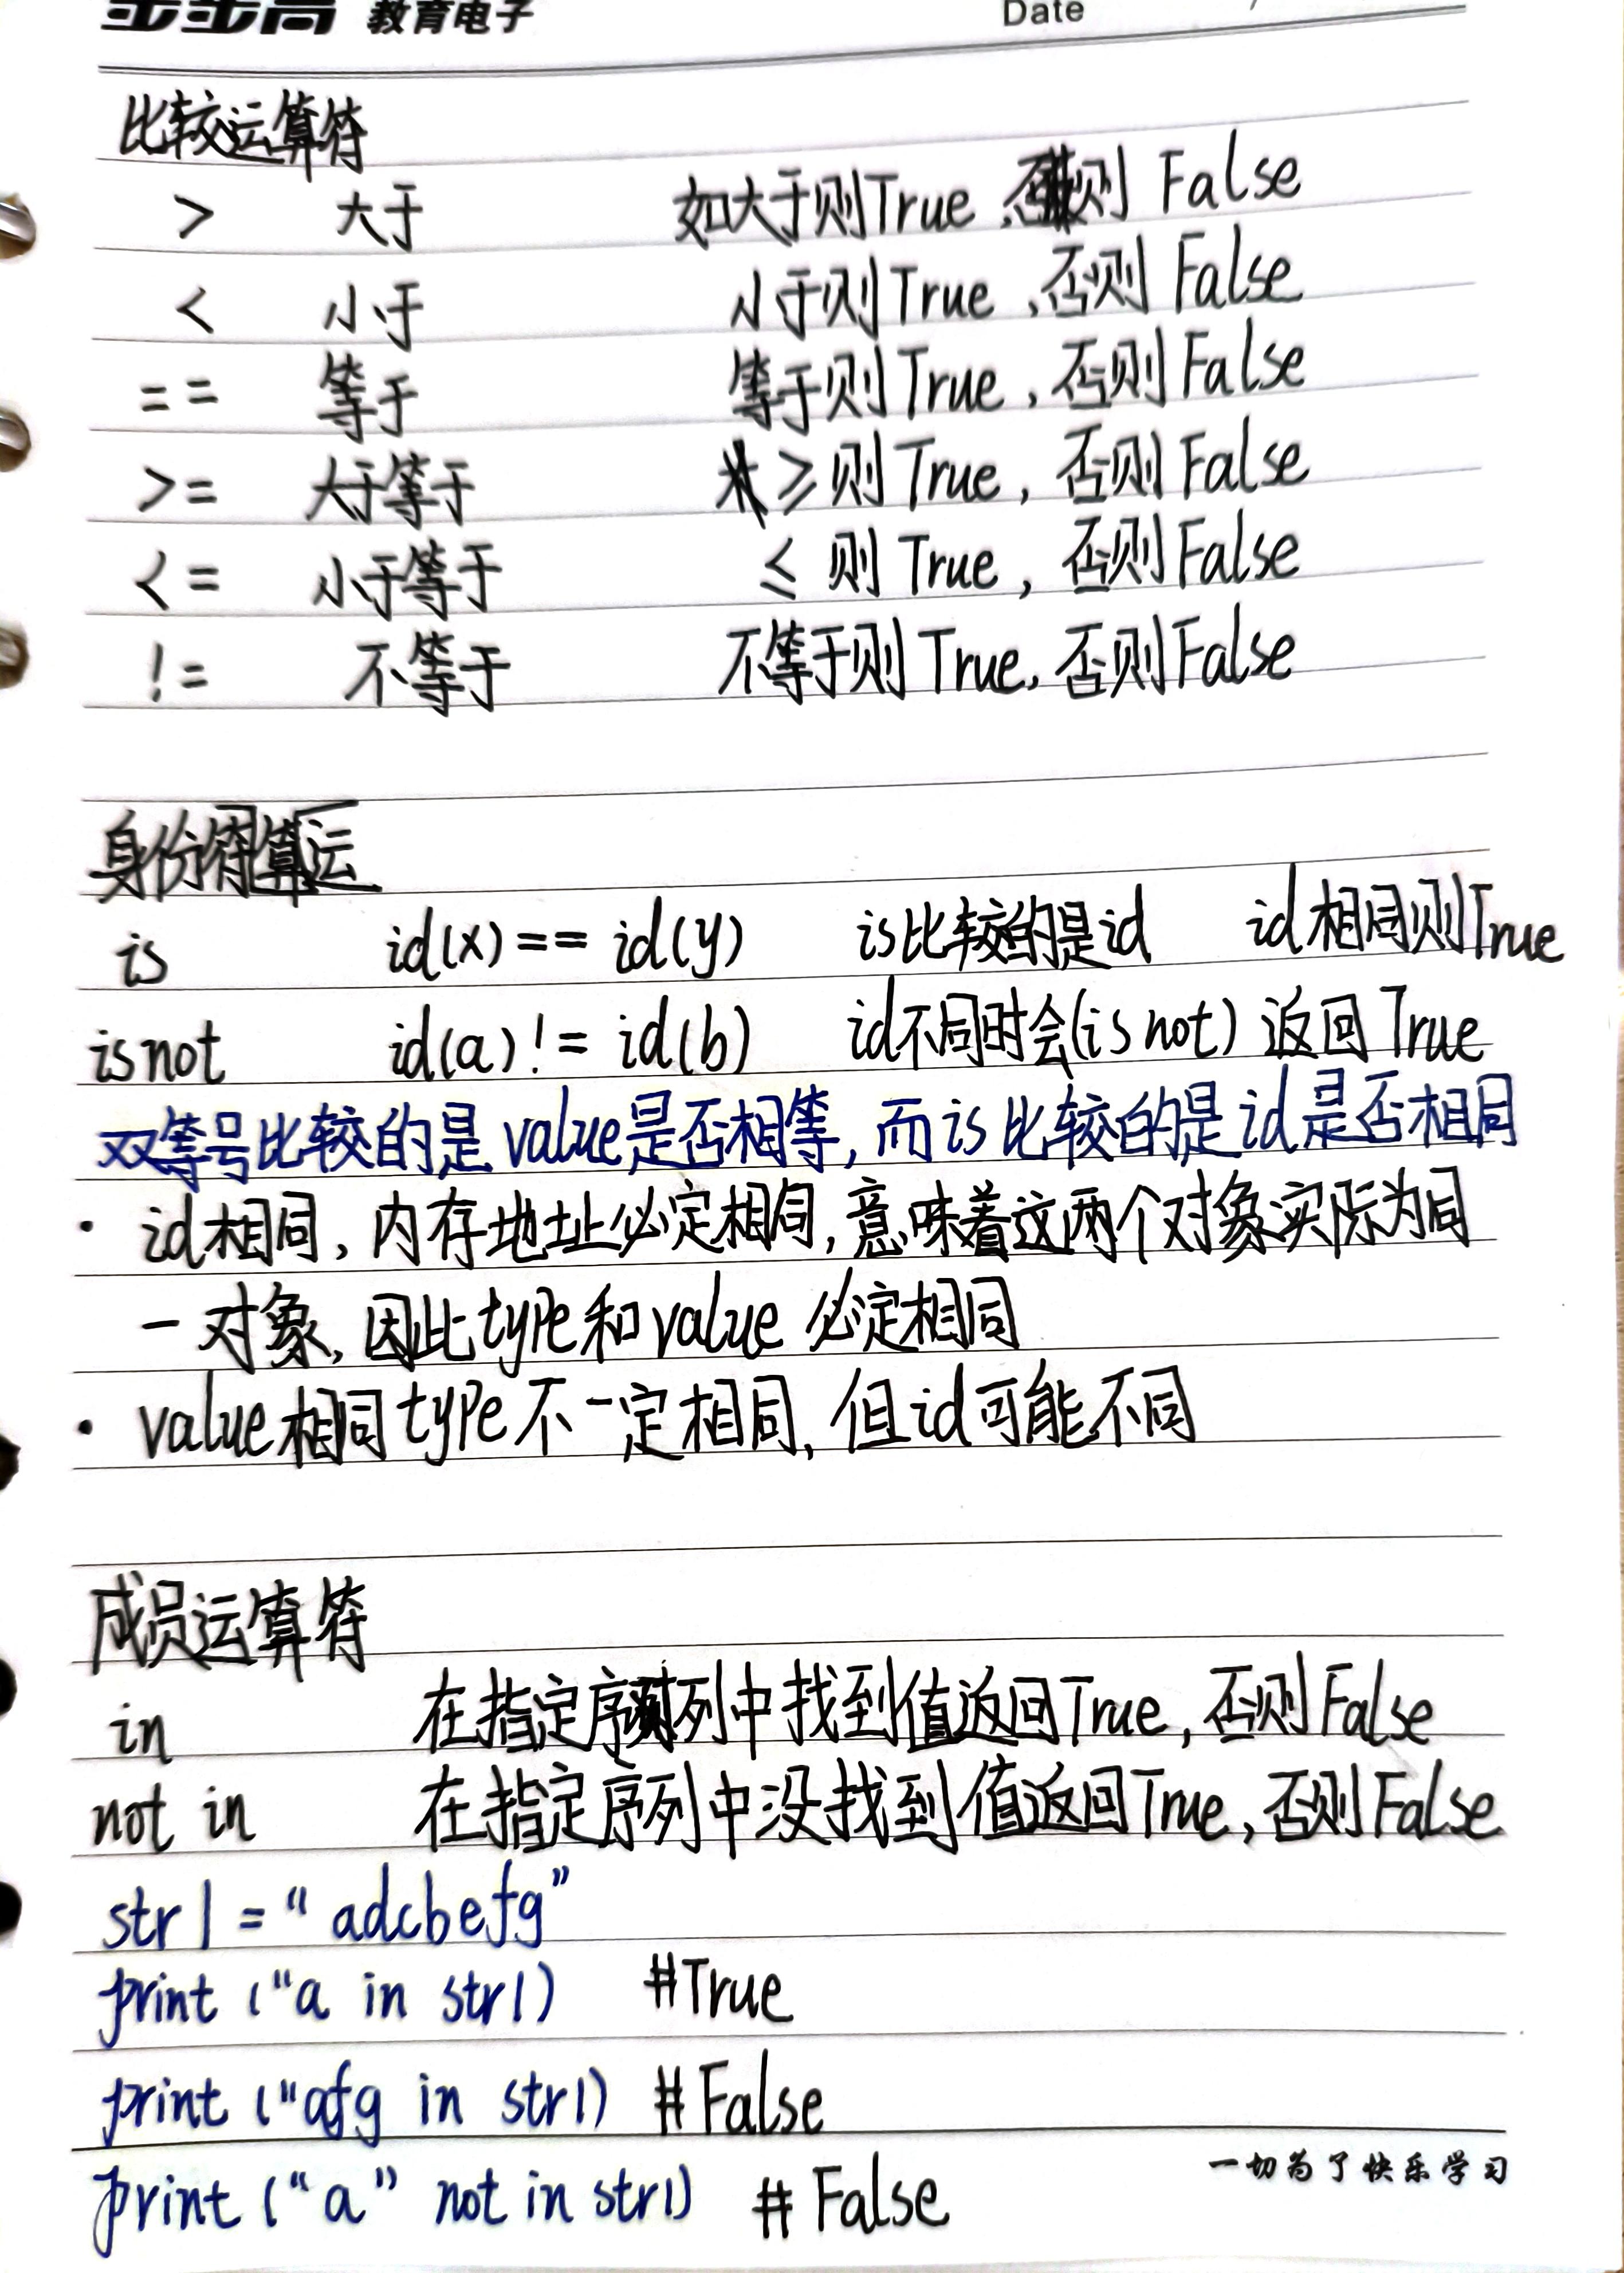 步步高 教育电子 Date
比较运算符
> 大于 如大于则True,否则 False
< 小于 小于则True,否则 False
== 等于 等于则True,否则False
>= 大于等于 ≥则True,否则False
<= 小于等于 ≤则True,否则False
!= 不等于 不等于则True,否则False
身份符算运
is id(x)==id(y) is比较的是id id相同则True
isnot id(a)!=id(b) id不同时会(is not)返回True
双等号比较的是value是否相等,而is比较的是id是否相同
· id相同,内存地址必定相同,意味着这两个对象实际为同
一对象,因此type和value必定相同
· value相同type不一定相同,但id可能不同
成员运算符
in 在指定序列中找到值返回True,否则False
not in 在指定序列中没找到值返回True,否则False
str1=“adcbefg”
print(“a in str1) #True
print(“afg in str1) #False
print(“a” not in str1) #False
一切为了快乐学习